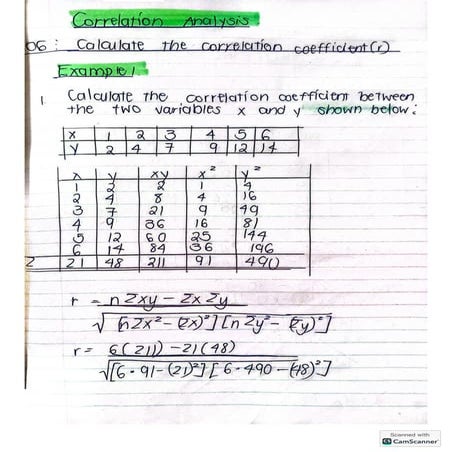 Correlation Analysis
06: Calculate the correlation coefficient (r)
Example 1
1. Calculate the correlation coefficient between
the two variables x and y shown below:
x 1 2 3 4 5 6
y 2 4 7 9 12 14
x y xy x² y²
1 2 2 1 4
2 4 8 4 16
3 7 21 9 49
4 9 36 16 81
5 12 60 25 144
6 14 84 36 196
Σ 21 48 211 91 490
r = nΣxy - ΣxΣy
√[nΣx² - (Σx)²][nΣy² - (Σy)²]
r = 6(211) - 21(48)
√[6·91 - (21)²][6·490 - (48)²]
Scanned with
CS CamScanner